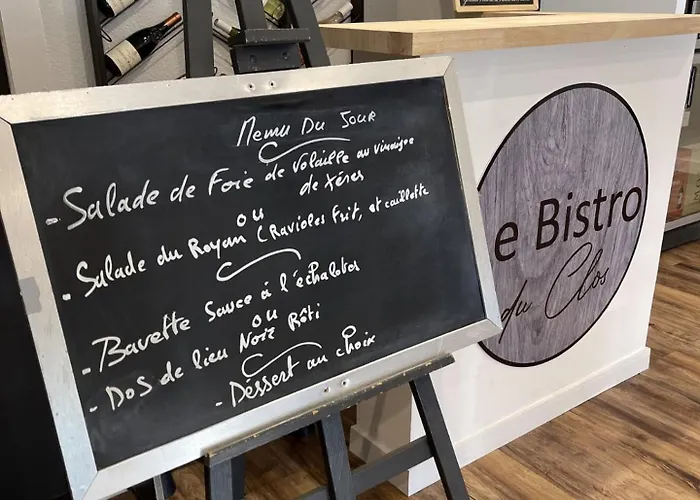 Menu Du Jour
- Salade de Foie de Volaille au vinaigre
de Xéres
ou
- Salade du Royan (Ravioles Frit, et caillette
- Bavette Sauce à l'échalotes
ou
- Dos de lieu Noir Rôti
- Déssert au choix
e Bistro
du Clos